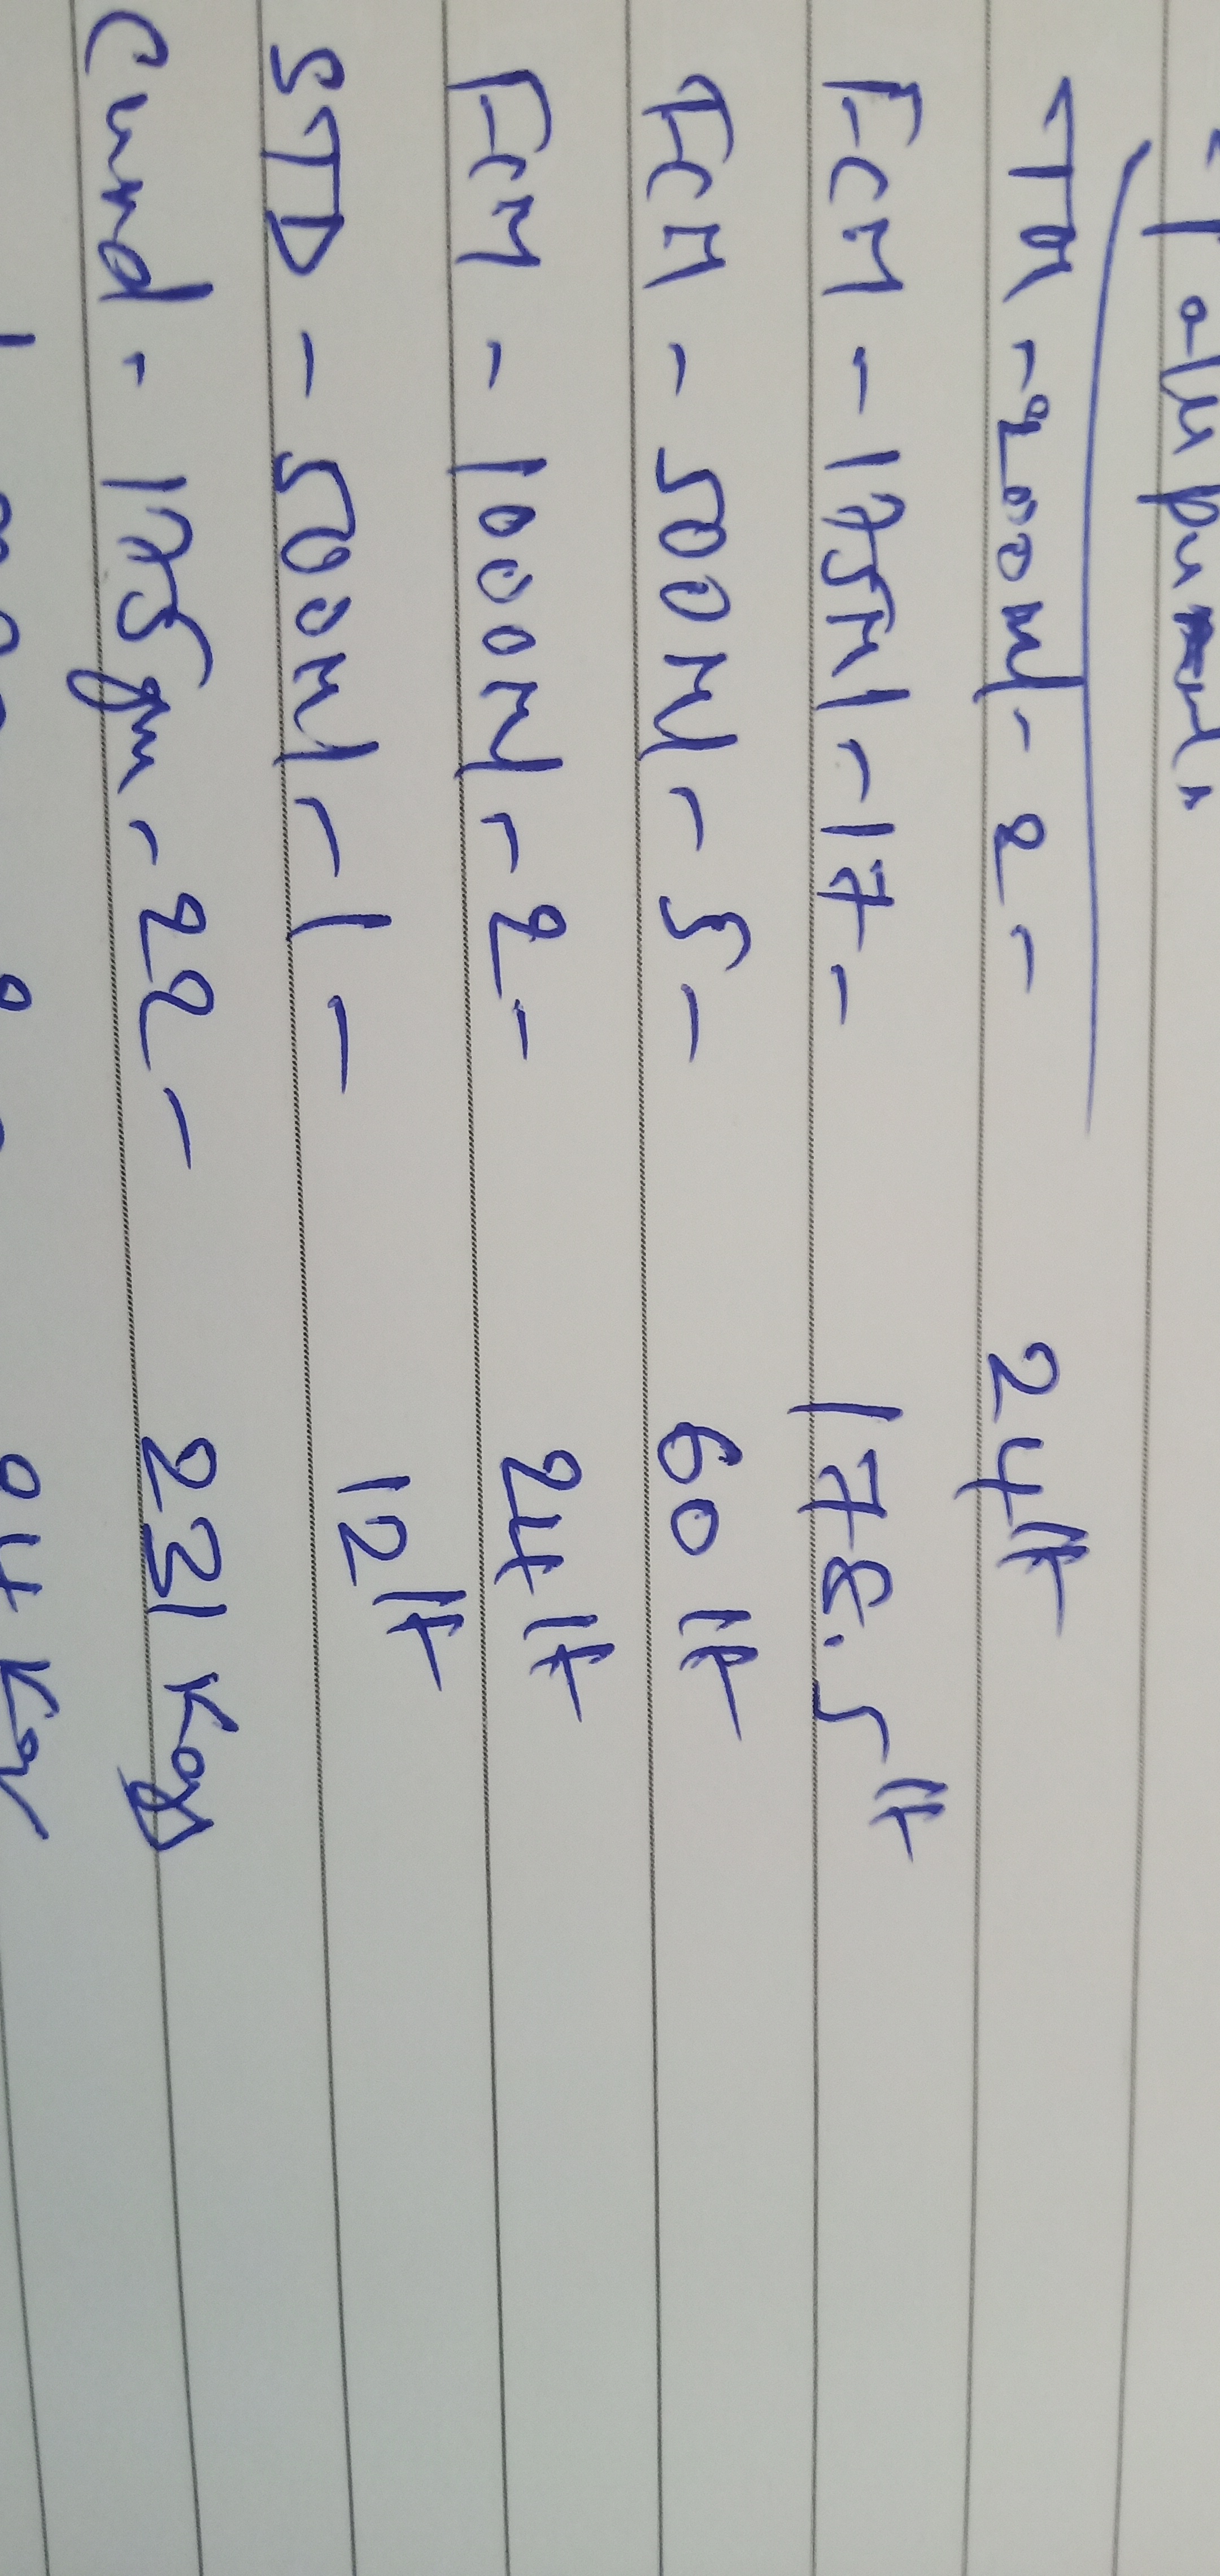 TM - 200Ml - 2 - 24 lt
FCM - 175Ml - 17 - 178.5 lt
FCM - 500Ml - 5 - 60 lt
FCM - 1000Ml - 2 - 24 lt
STD - 500Ml - 1 - 12 lt
Curd - 175gm - 22 - 231 Kgs